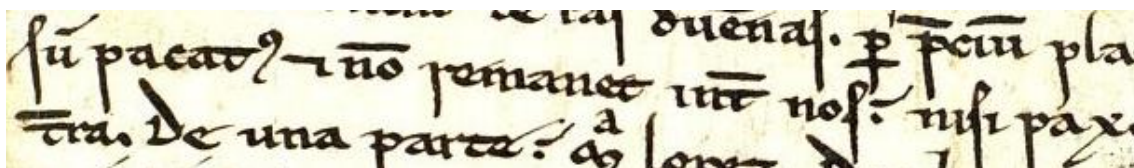 de las duen̄as. ꝑ p̄ciū pla
sū pacatꝰ ⁊ nō remanet int̄ nos: nisi pax
t̄ra. De una parte: